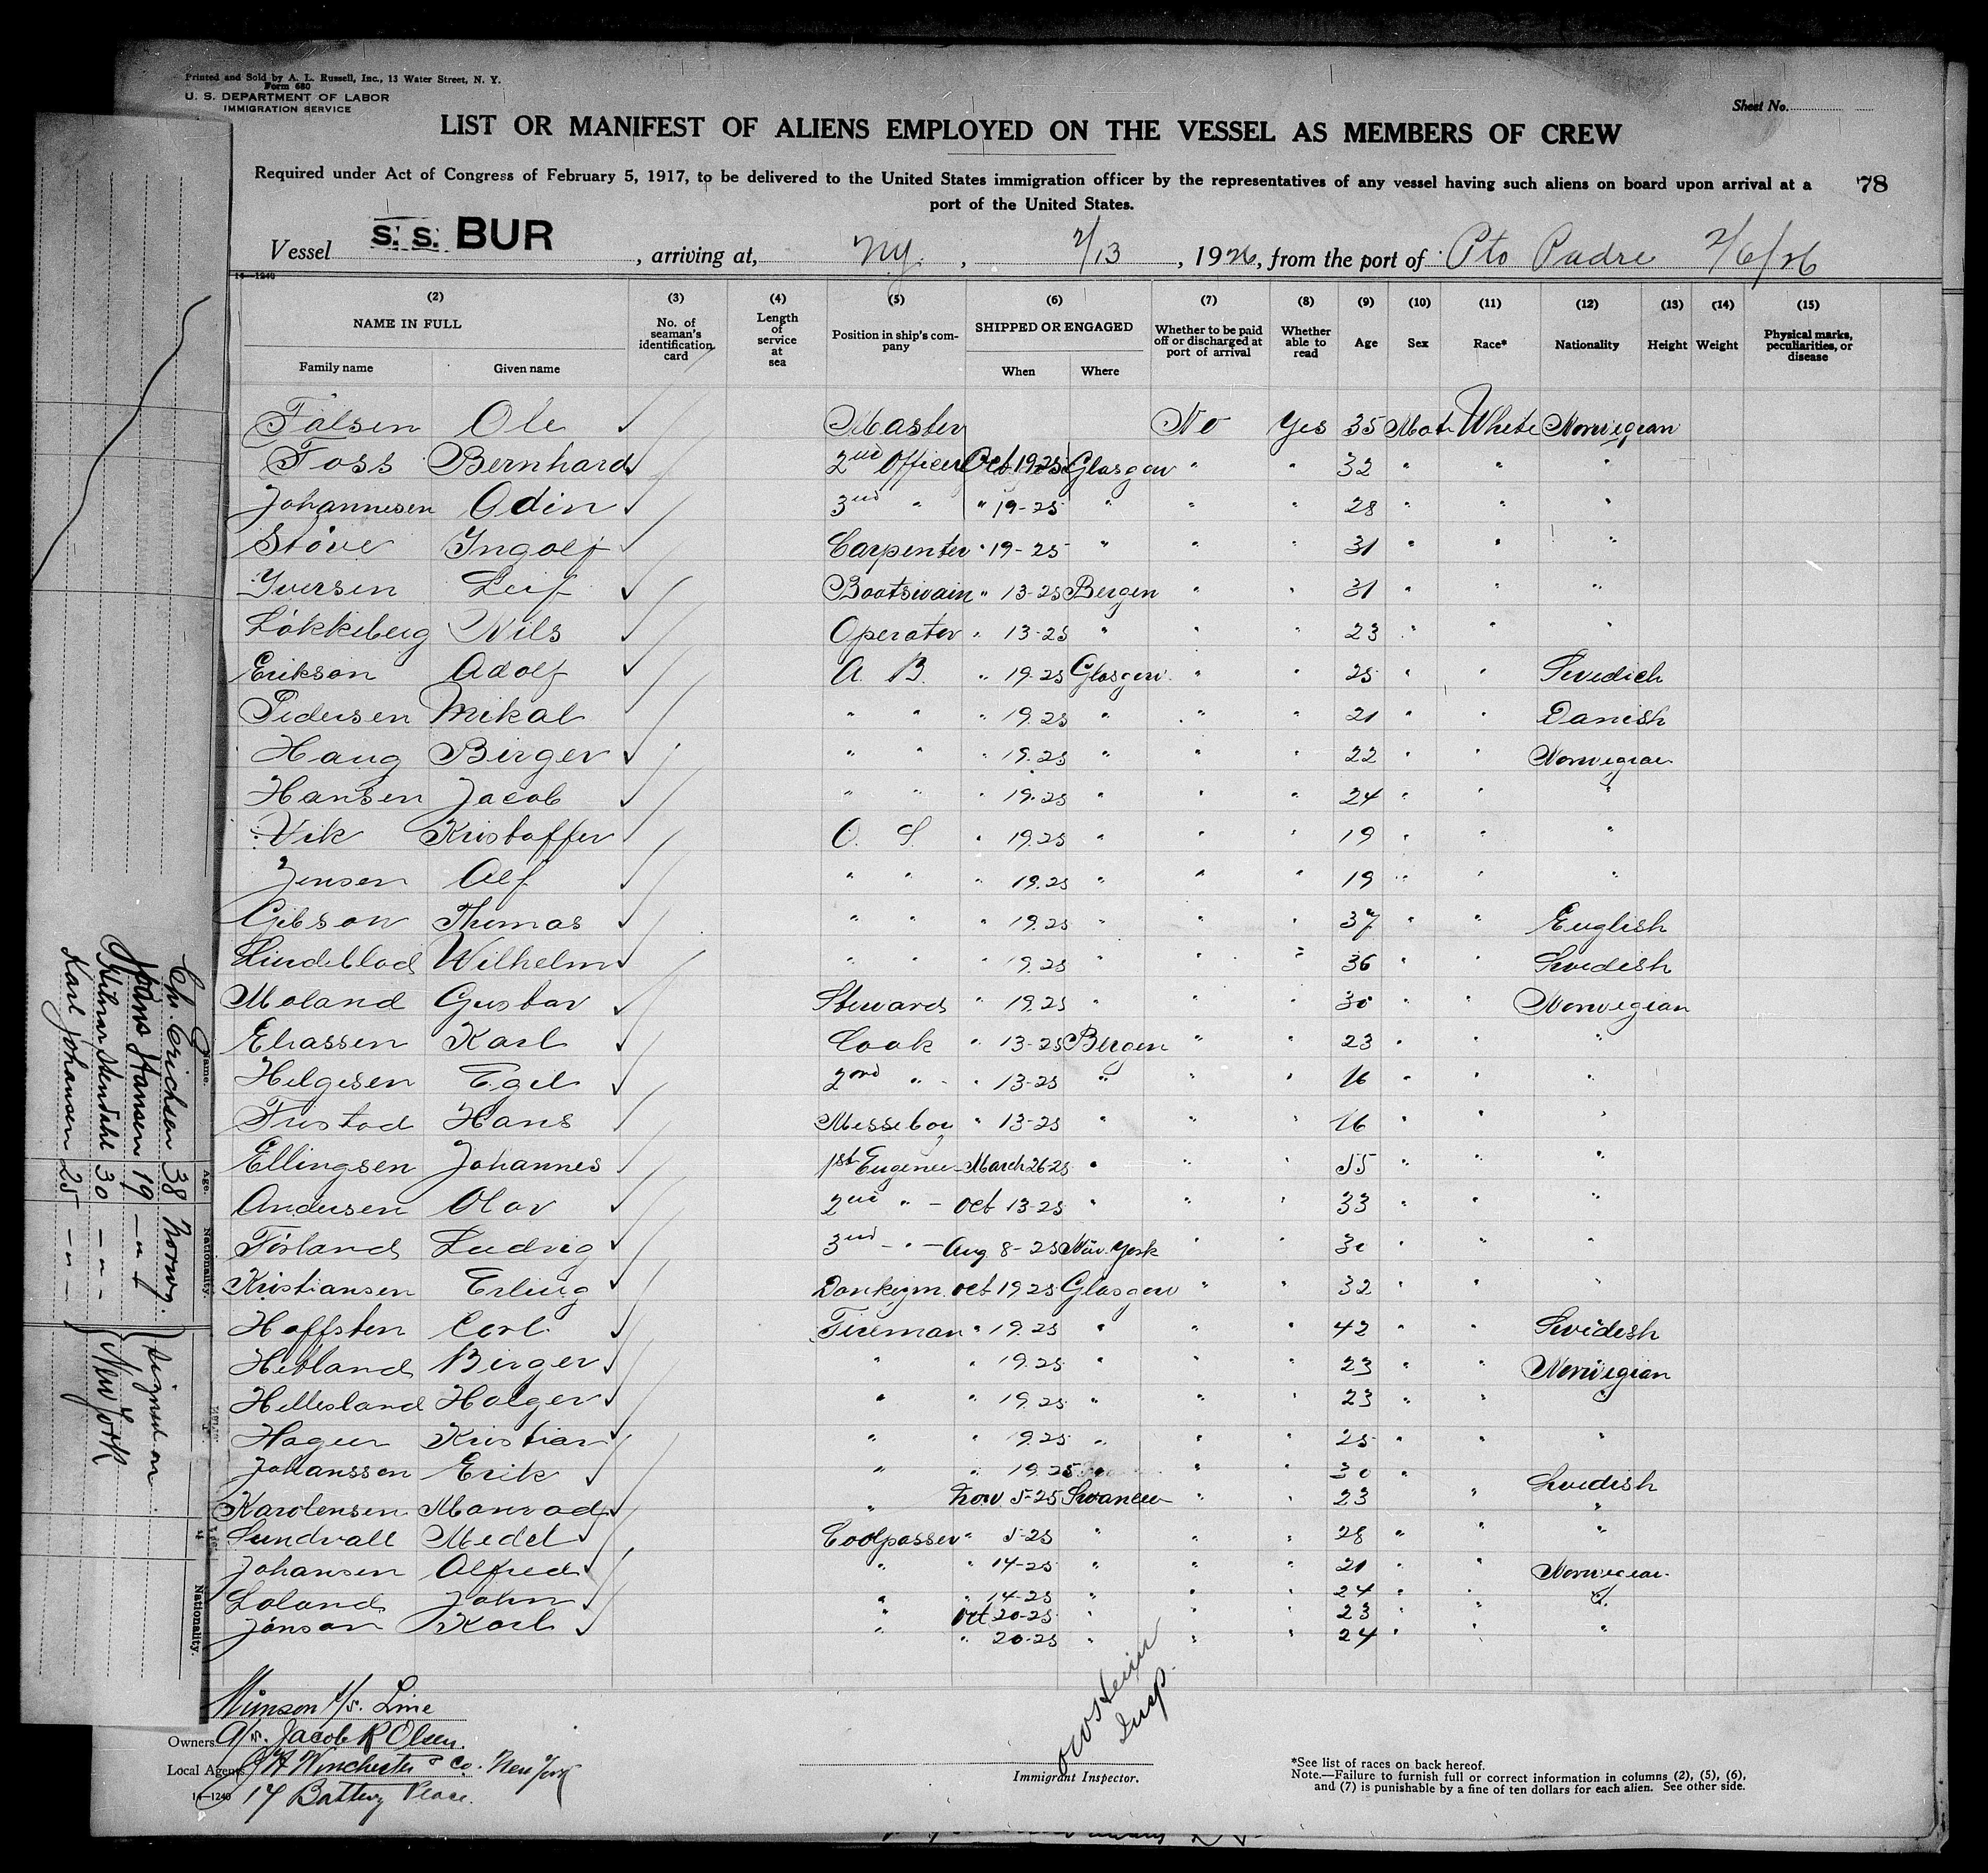 Printed and Sold by A. L. Russell, Inc., 13 Water Street, N. Y.
Form 680
U. S. DEPARTMENT OF LABOR
IMMIGRATION SERVICE
Sheet No.
LIST OR MANIFEST OF ALIENS EMPLOYED ON THE VESSEL AS MEMBERS OF CREW
Required under Act of Congress of February 5, 1917, to be delivered to the United States immigration officer by the representatives of any vessel having such aliens on board upon arrival at a
port of the United States.
78
Vessel S. S. BUR, arriving at, Ny, 2/13, 1926, from the port of Pto Padre 2/6/26
14—1240
(2) (3) (4) (5) (6) (7) (8) (9) (10) (11) (12) (13) (14) (15)
NAME IN FULL No. of seaman's identification card Length of service at sea Position in ship's company SHIPPED OR ENGAGED Whether to be paid off or discharged at port of arrival Whether able to read Age Sex Race* Nationality Height Weight Physical marks, peculiarities, or disease
Family name Given name When Where
Falsen Ole Master No Yes 35 White Norwegian
Foss Bernhard 2nd Officer Oct 19.25 Glasgow " " 32 " " "
Johannesen Odin 3rd " " 19-25 " " " 28 " " "
Støve Ingolf Carpenter " 19-25 " " " 31 " " "
Iversen Leif Bootswain " 13-25 Bergen " " 31 " " "
Løkkeberg Nils Operator " 13-25 " " " 23 " " "
Erikson Adolf A. B. " 19.25 Glasgow " " 25 " " Swedich
Pedersen Mikal " " " 19.25 " " " 21 " " Danish
Haug Birger " " " 19.25 " " " 22 " " Norwegian
Hansen Jacob " " " 19.25 " " " 24 " " "
Vik Kristoffer O. S. " 19.25 " " " 19 " " "
Jensen Alf " " " 19.25 " " " 19 " " "
Gibson Thomas " " " 19.25 " " " 37 " " English
Lindeblad Wilhelm " " " 19.25 " " " 36 " " Swedish
Moland Gustav Steward " 19.25 " " " 30 " " Norwegian
Eliassen Karl Cook " 13-25 Bergen " " 23 " " "
Helgesen Egil 2nd " " 13-25 " " " 16 " " "
Frustad Hans Messeboy " 13-25 " " " 16 " " "
Ellingsen Johannes 1st Engeneer March 26-25 " " " 55 " " "
Andersen Olav 2nd " - Oct 13-25 " " " 33 " " "
Førland Ludvig 3rd - " - Aug. 8-25 New York " " 30 " " "
Kristiansen Erling Donkeym. oct 19 25 Glasgow " " 32 " " "
Hoffsten Carl Fireman " 19.25 " " " 42 " " Swedish
Hetland Birger " " 19.25 " " " 23 " " Norwegian
Hellesland Holger " " 19.25 " " " 23 " " "
Hagen Kristian " " 19.25 " " " 25 " " "
Johanssen Erik " " 19.25 " " 30 " Swedish
Karolensen Monrad " Nov 5-25 Swansea " " 23 " "
Sundvall Medel Coolpasser " 5-25 " " " 28 " " "
Johansen Alfred " " 14-25 " " " 21 " " Norwegian
Loland John " " 14-25 " " " 24 " "
Jonson Karl " Oct 20-25 " " " 23 " "
" " 20-25 " " " 24 " " "
Name. Age. Nationality.
Ch. Erichsen 38 Norwg.
Hans Hansen 19 — " —
Hilmar Stendahl 30 — " —
Karl Johansen 25 — " —
signed on
New York
Nationality.
Munson S/S. Line
Owners A/S. Jacob R Olsen.
Local Agents Winchester & Co. New York
14—1240 17 Battery Place.
Insp.
Immigrant Inspector.
*See list of races on back hereof.
Note.—Failure to furnish full or correct information in columns (2), (5), (6),
and (7) is punishable by a fine of ten dollars for each alien. See other side.